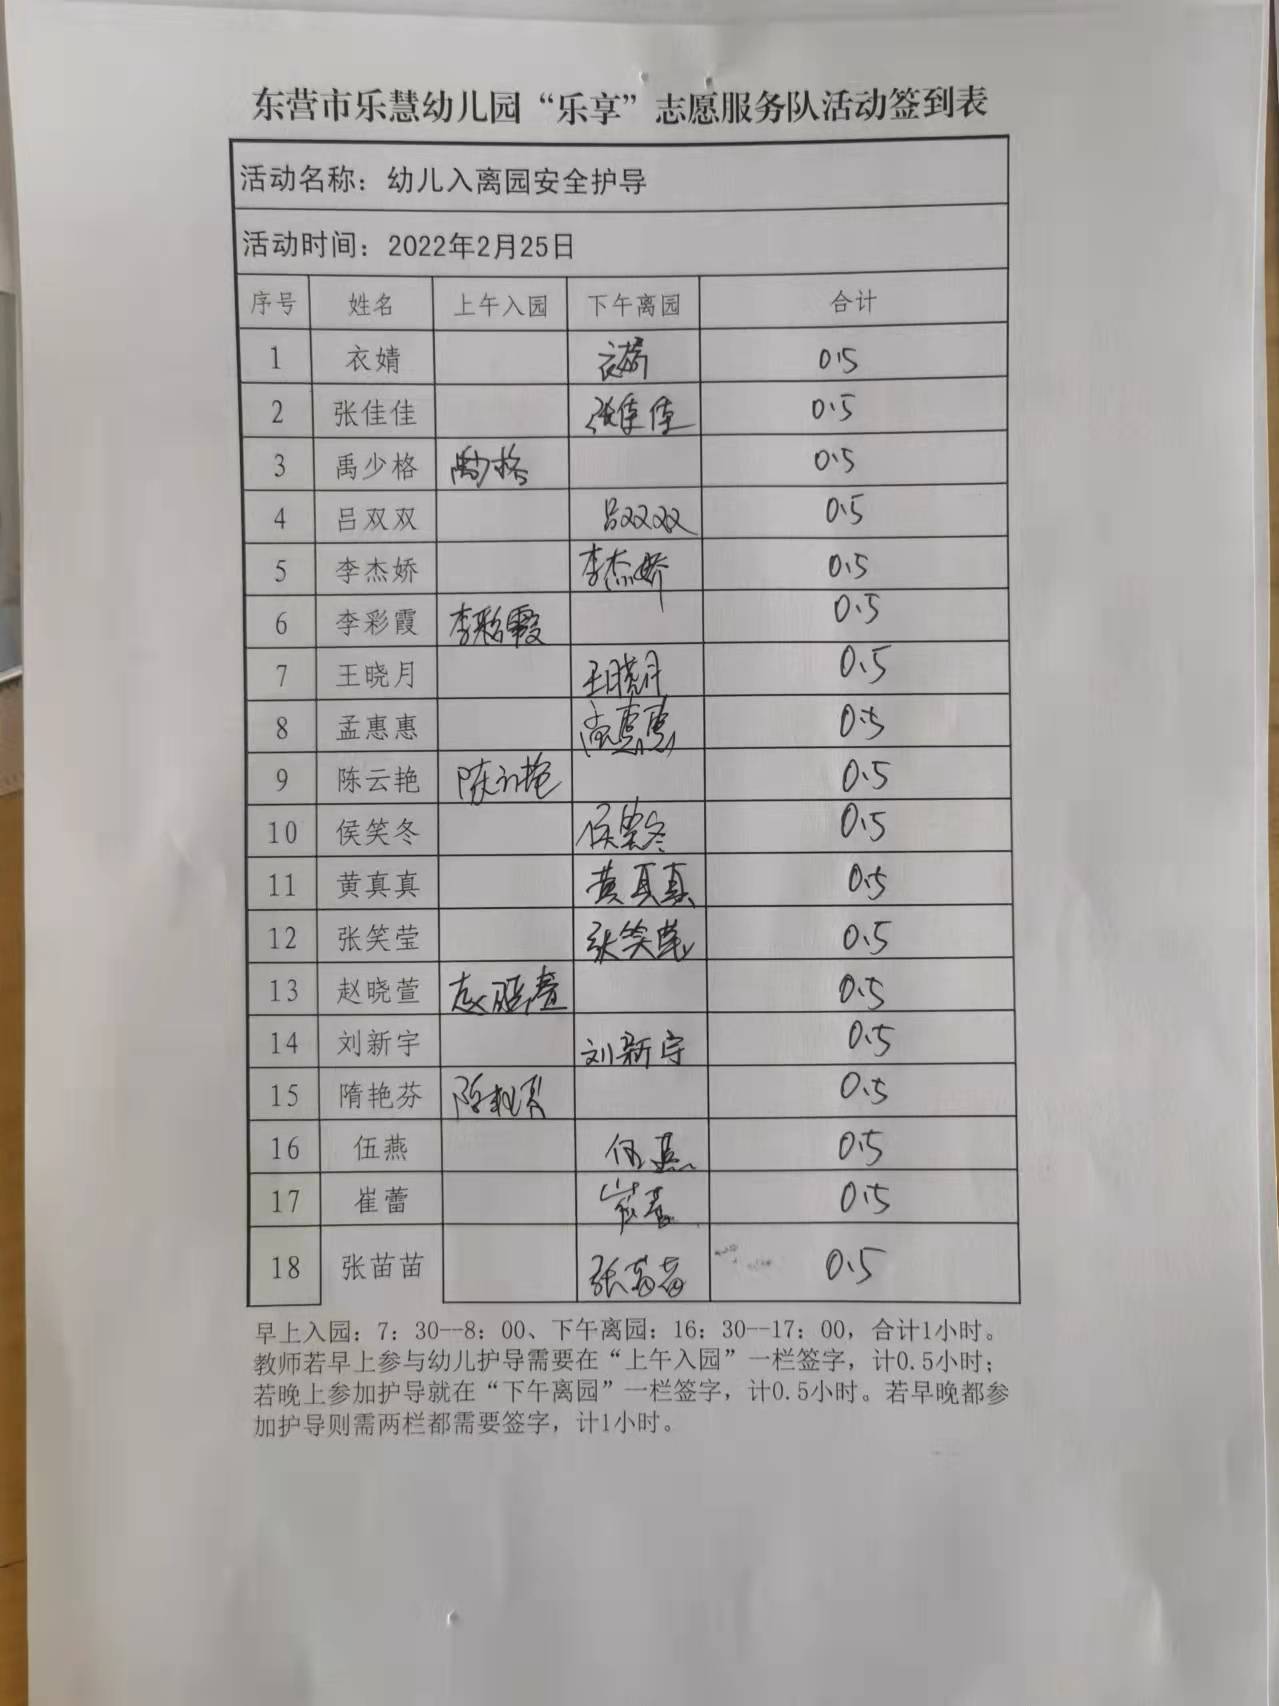 东营市乐慧幼儿园“乐享”志愿服务队活动签到表
活动名称：幼儿入离园安全护导
活动时间：2022年2月25日
序号 姓名 上午入园 下午离园 合计
1 衣婧 衣婧 0.5
2 张佳佳 张佳佳 0.5
3 禹少格 禹少格 0.5
4 吕双双 吕双双 0.5
5 李杰娇 李杰娇 0.5
6 李彩霞 李彩霞 0.5
7 王晓月 王晓月 0.5
8 孟惠惠 孟惠惠 0.5
9 陈云艳 陈云艳 0.5
10 侯笑冬 侯笑冬 0.5
11 黄真真 黄真真 0.5
12 张笑莹 张笑莹 0.5
13 赵晓萱 赵晓萱 0.5
14 刘新宇 刘新宇 0.5
15 隋艳芬 隋艳芬 0.5
16 伍燕 伍燕 0.5
17 崔蕾 崔蕾 0.5
18 张苗苗 张苗苗 0.5
早上入园：7：30--8：00、下午离园：16：30--17：00，合计1小时。
教师若早上参与幼儿护导需要在“上午入园”一栏签字，计0.5小时；
若晚上参加护导就在“下午离园”一栏签字，计0.5小时。若早晚都参
加护导则需两栏都需要签字，计1小时。